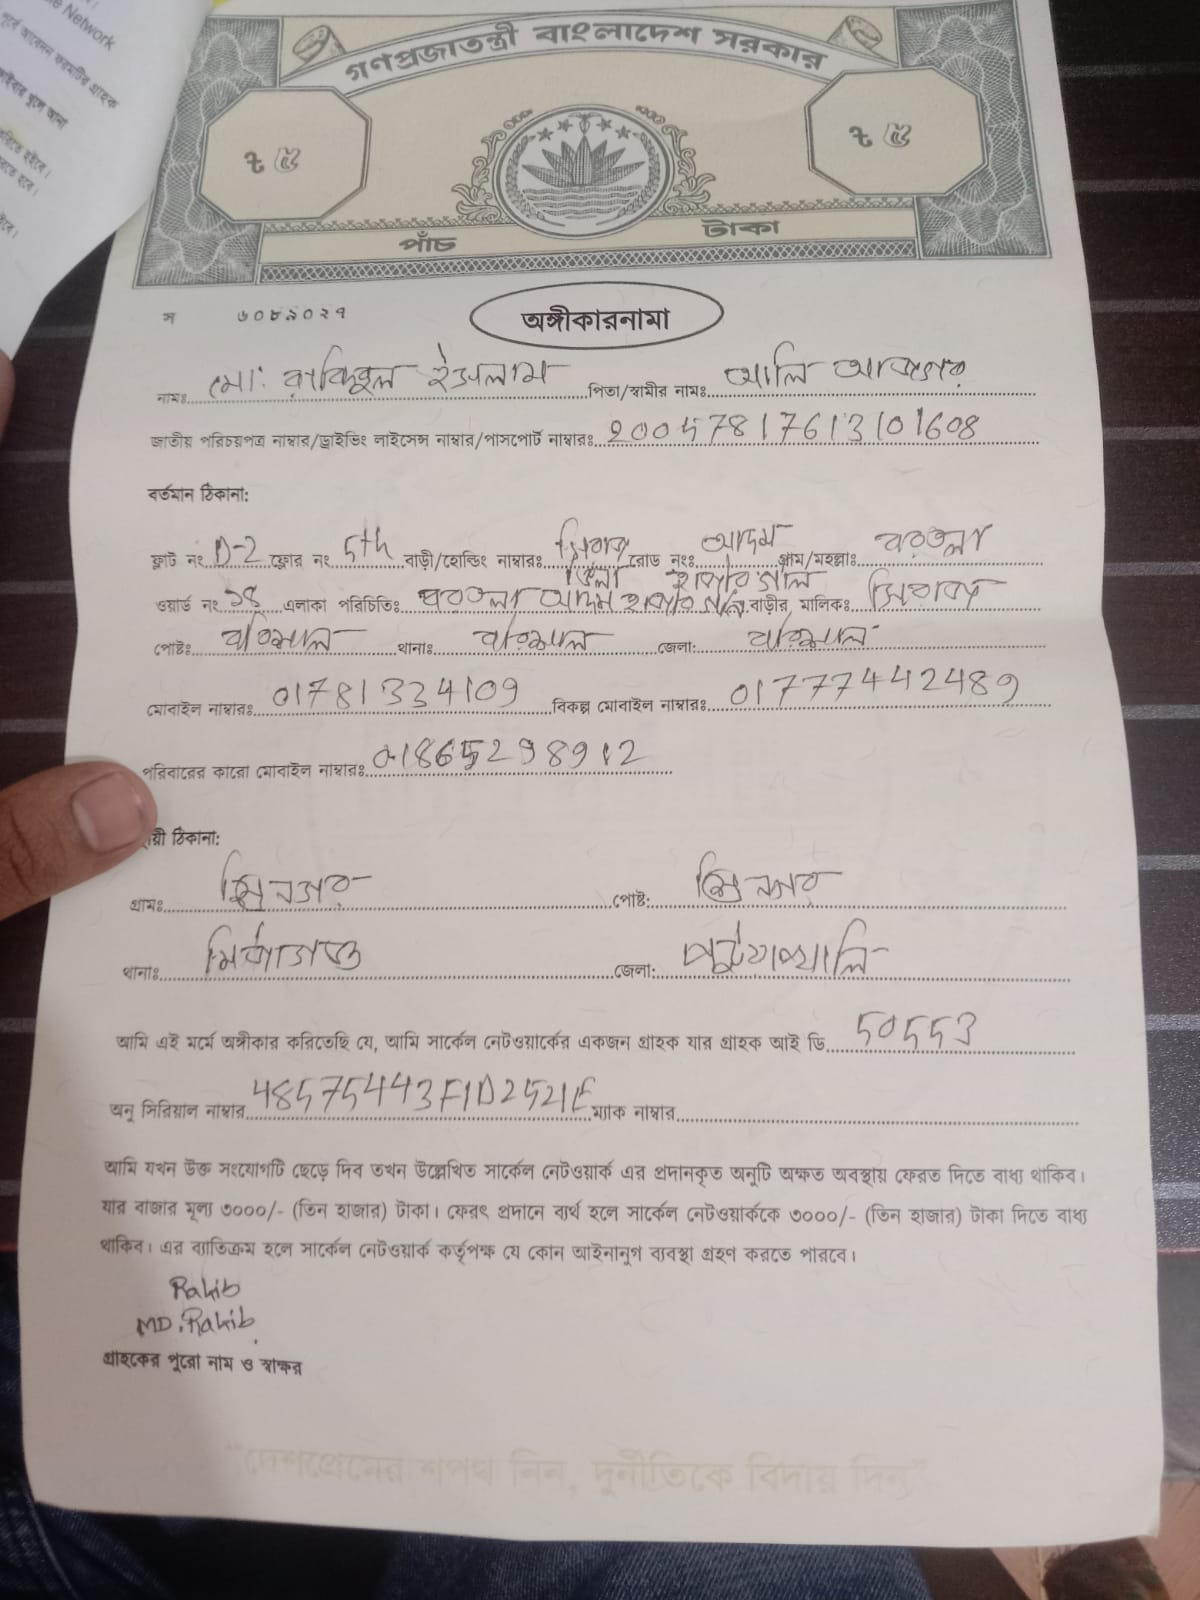 গণপ্রজাতন্ত্রী বাংলাদেশ সরকার
৳ ৫
৳ ৫
পাঁচ টাকা
অঙ্গীকারনামা
নামঃ মো: রাকিবুল ইসলাম পিতা/স্বামীর নামঃ আলি আকবার
জাতীয় পরিচয়পত্র নাম্বার/ড্রাইভিং লাইসেন্স নাম্বার/পাসপোর্ট নাম্বারঃ 20057817613101608
বর্তমান ঠিকানা:
ফ্লাট নং D-2 ফ্লোর নং 5th বাড়ী/হোল্ডিং নাম্বারঃ রোড নংঃ আদম গ্রাম/মহল্লাঃ
ওয়ার্ড নং এলাকা পরিচিতিঃ আদম বাড়ীর মালিকঃ
পোষ্টঃ বরিশাল থানাঃ বরিশাল জেলা: বরিশাল
মোবাইল নাম্বারঃ 01781334109 বিকল্প মোবাইল নাম্বারঃ 01777442489
পরিবারের কারো মোবাইল নাম্বারঃ 01865298912
ঠিকানা:
গ্রামঃ শ্রিনগর পোষ্ট: শ্রিনগর
থানাঃ মির্জাগঞ্জ জেলা: পটুয়াখালি
আমি এই মর্মে অঙ্গীকার করিতেছি যে, আমি সার্কেল নেটওয়ার্কের একজন গ্রাহক যার গ্রাহক আই ডি 50553
অনু সিরিয়াল নাম্বার 48575443F1D2521E ম্যাক নাম্বার
আমি যখন উক্ত সংযোগটি ছেড়ে দিব তখন উল্লেখিত সার্কেল নেটওয়ার্ক এর প্রদানকৃত অনুটি অক্ষত অবস্থায় ফেরত দিতে বাধ্য থাকিব।
যার বাজার মূল্য ৩০০০/- (তিন হাজার) টাকা। ফেরৎ প্রদানে ব্যর্থ হলে সার্কেল নেটওয়ার্ককে ৩০০০/- (তিন হাজার) টাকা দিতে বাধ্য
থাকিব। এর ব্যতিক্রম হলে সার্কেল নেটওয়ার্ক কর্তৃপক্ষ যে কোন আইনানুগ ব্যবস্থা গ্রহণ করতে পারবে।
Rakib
MD. Rakib
গ্রাহকের পুরো নাম ও স্বাক্ষর
"দেশপ্রেমের শপথ নিন, দুর্নীতিকে বিদায় দিন"